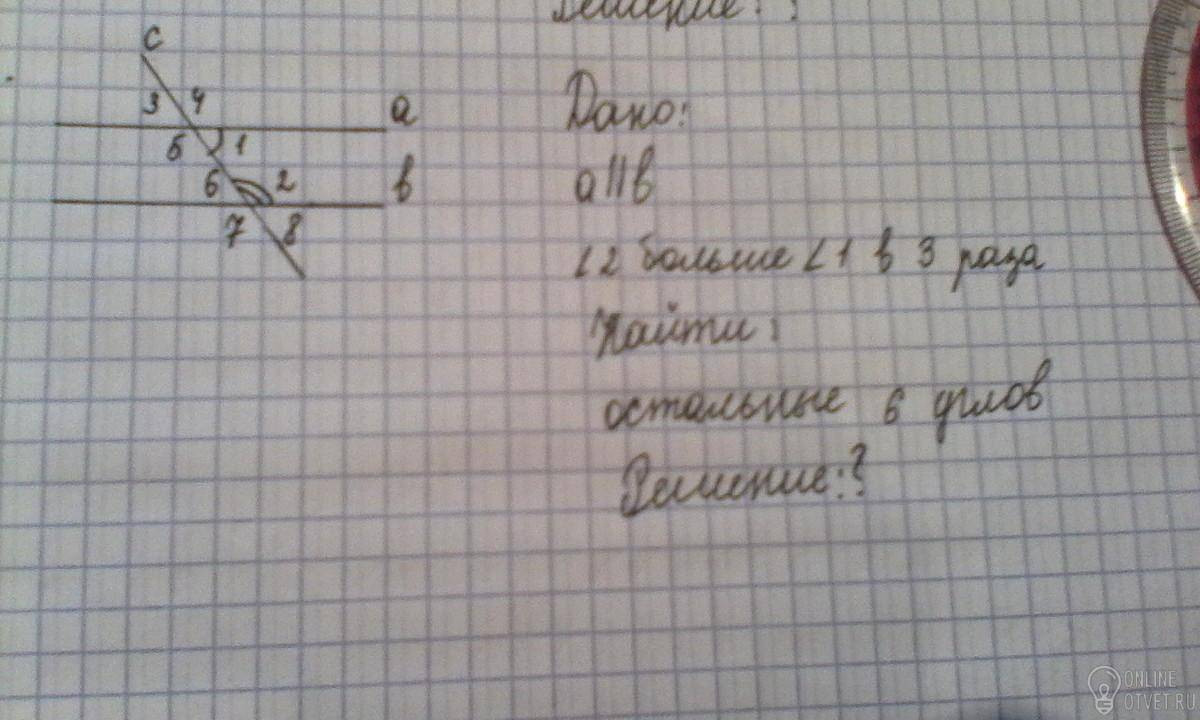 Решение: ?
c
3 4 a
5 1
6 2 в
7 8
Дано:
a||в
∠2 больше ∠1 в 3 раза
Найти:
остальные 6 углов
Решение:?
ONLINE
OTVET.RU